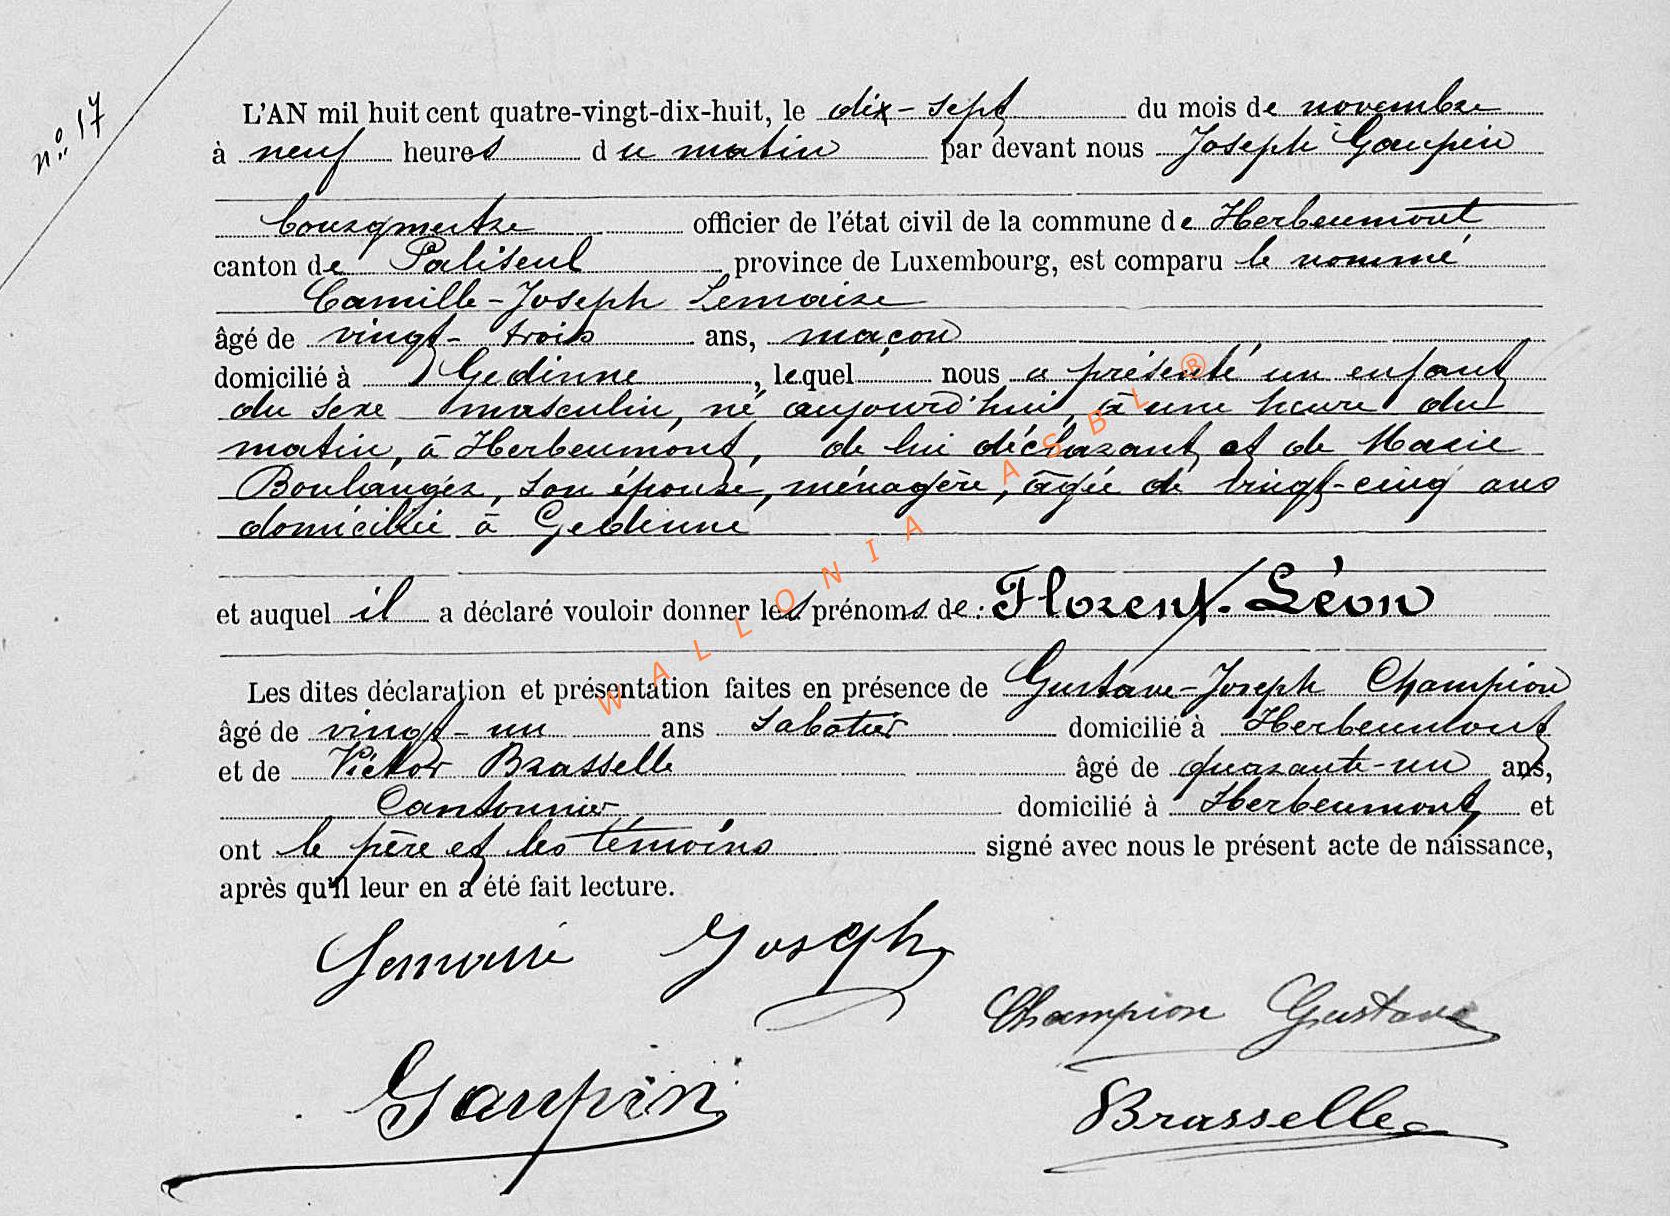 n° 17
L'AN mil huit cent quatre-vingt-dix-huit, le dix-sept du mois de novembre
à neuf heures du matin par devant nous Joseph Gaupin
Bourgmestre officier de l'état civil de la commune de Herbeumont
canton de Paliseul province de Luxembourg, est comparu le nommé
Camille-Joseph Lemaire
âgé de vingt-trois ans, maçon
domicilié à Gedinne, lequel nous a présenté un enfant
du sexe masculin, né aujourd'hui, à une heure du
matin, à Herbeumont, de lui déclarant et de Marie
Boulanger, son épouse, ménagère, âgée de vingt-cinq ans
domiciliée à Gedinne
et auquel il a déclaré vouloir donner les prénoms de : Florent-Léon
Les dites déclaration et présentation faites en présence de Gustave-Joseph Champion
âgé de vingt-un ans sabotier domicilié à Herbeumont
et de Victor Brasselle âgé de quarante-un ans,
Cantonnier domicilié à Herbeumont et
ont le père et les témoins signé avec nous le présent acte de naissance,
après qu'il leur en a été fait lecture.
Lemaire Joseph
Champion Gustave
Gaupin
Brasselle
WALLONIA ASBL ®